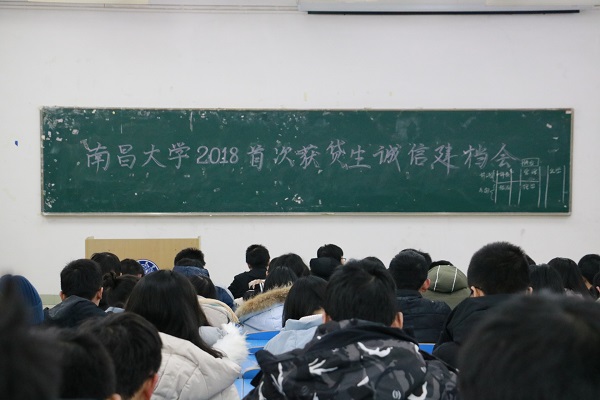 南昌大学2018首次获贷生诚信建档会